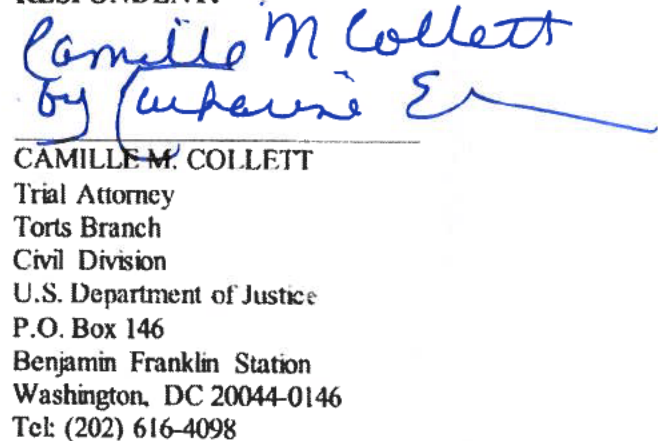 RESPONDENT:
Camille M Collett
by Catharine E
CAMILLE M. COLLETT
Trial Attorney
Torts Branch
Civil Division
U.S. Department of Justice
P.O. Box 146
Benjamin Franklin Station
Washington, DC 20044-0146
Tel: (202) 616-4098